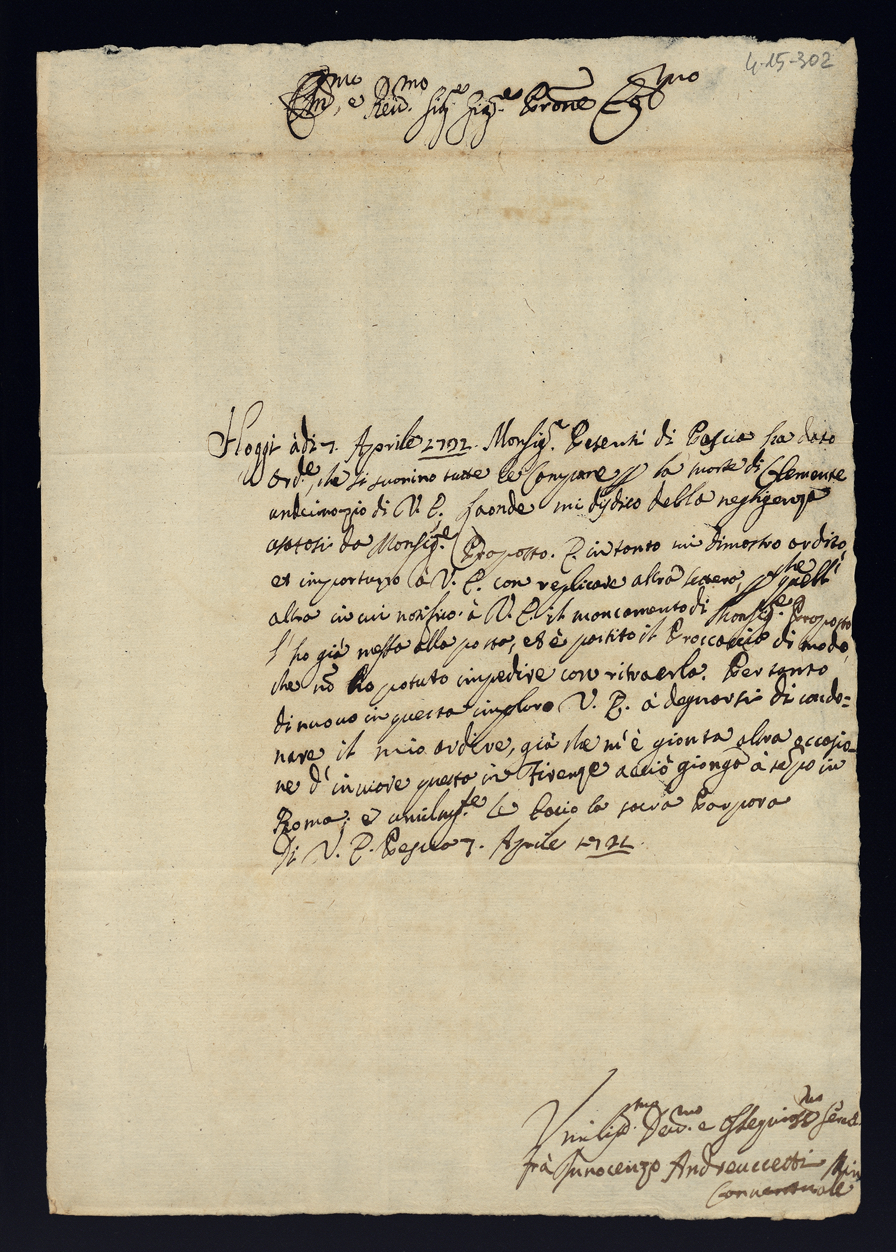 4-15-302
Em.mo, e Rev.mo Sig.e Sig.re Prone Col.mo
Hoggi à di 7. Aprile 1721. Monsig.e Pesenti di Pescia ha dato
ord.e, che si suonino tutte le Campane p la morte di Clemente
undecimo zio di V. E. Laonde mi disdico della negligenza
usatasi da Monsig.re Proposto. E intanto mi dimostro ardito,
et importuno à V. E. con replicare altra lettera, p che quell'
altra in cui notifico à V. E. il mancamento di Monsig.re Proposto
l'ho già messa alla posta, et è partito il Proccaccio di modo,
che nõ ho potuto impedire con ritrarla. Per tanto
di nuovo in questa imploro V. E. à degnarsi di condo=
nare il mio ardire, già che m'è gionta altra occasio=
ne d'inviare questa in Firenze acciò gionga à tẽpo in
Roma; e umilm.te le bacio la sacra Porpora
Di V. E. Pescia 7. Aprile 1721.
Umilis.mo Dev.mo e Ossequios.mo Serv.
frà Innocenzo Andreuccetti Min
Conventuale